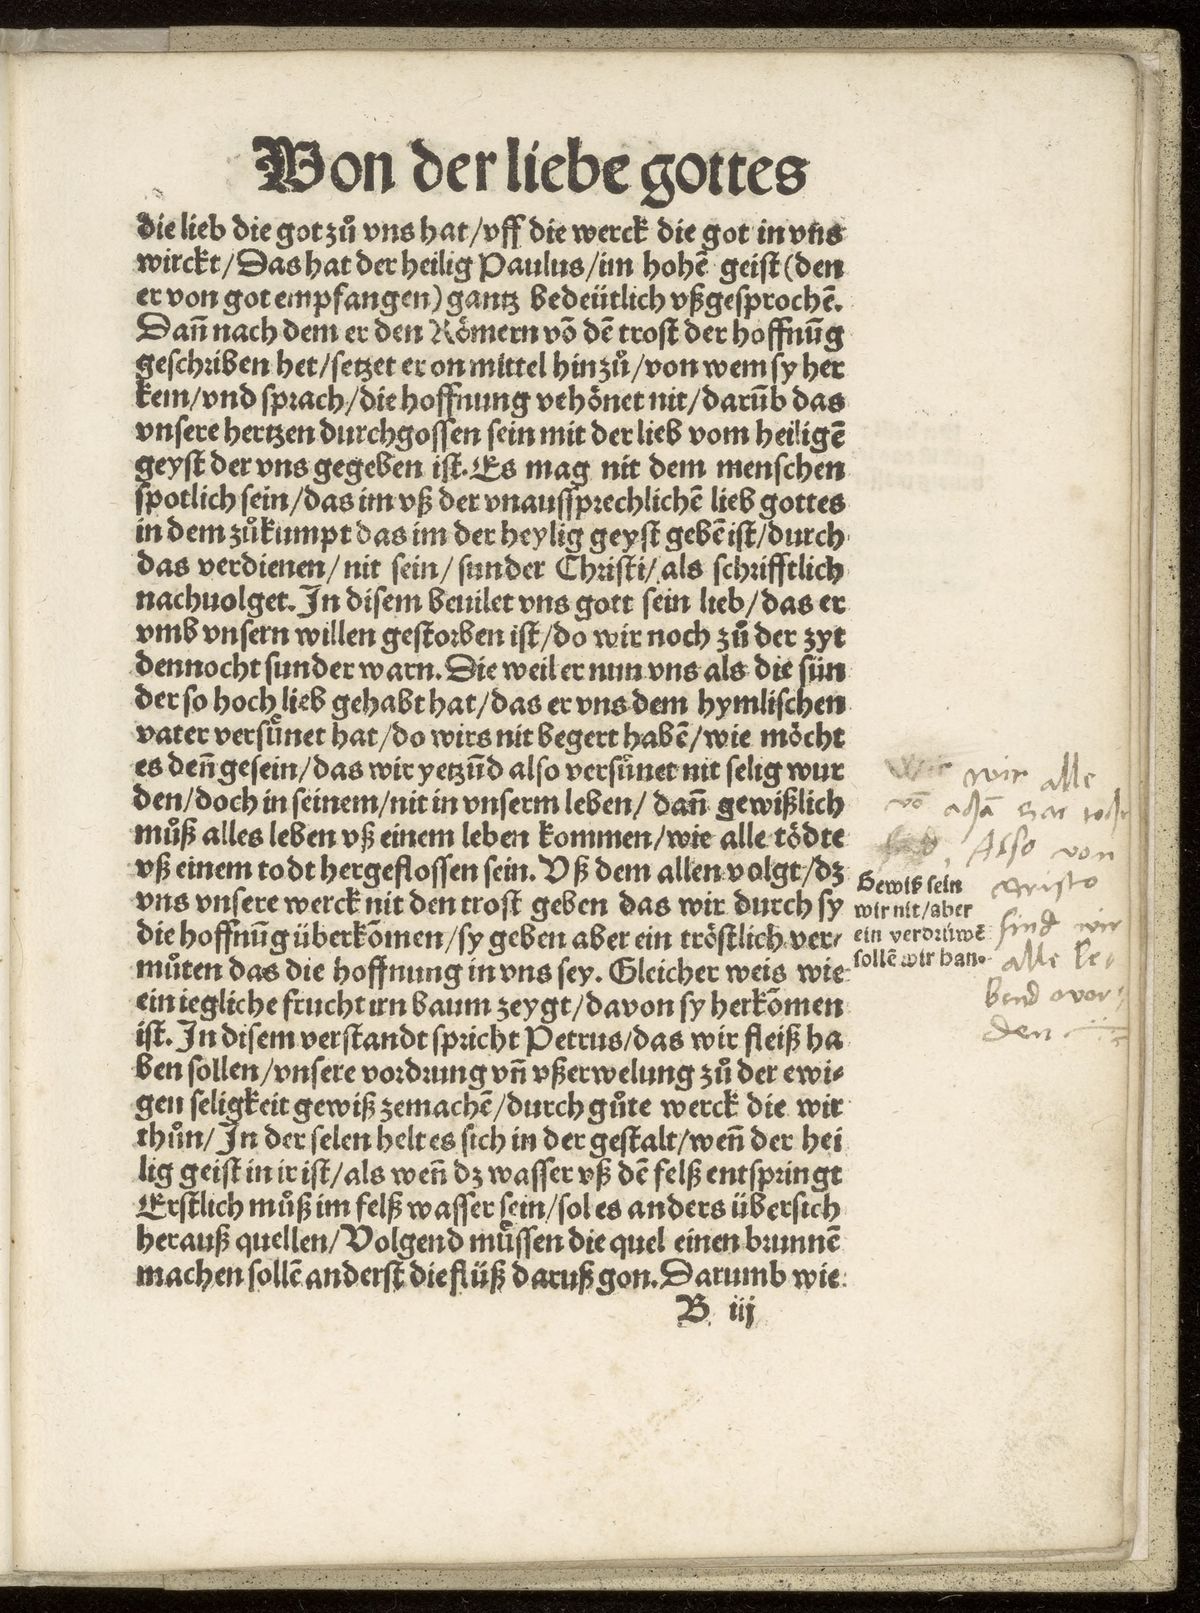 Von der liebe gottes
die lieb die got zů vns hat/vff die werck die got in vns
wirckt/Das hat der heilig Paulus/im hohē geist (den
er von got empfangen) gantz bedeütlich vßgesprochē.
Dañ nach dem er den Römern vō dē trost der hoffnūg
geschriben het/setzet er on mittel hinzů/von wem sy her
kem/vnd sprach/die hoffnung vehönet nit/darūb das
vnsere hertzen durchgossen sein mit der lieb vom heiligē
geyst der vns gegeben ist. Es mag nit dem menschen
spotlich sein/das im vß der vnaussprechlichē lieb gottes
in dem zůkumpt das im der heylig geyst gebē ist/durch
das verdienen/nit sein/sunder Christi/als schrifftlich
nachuolget. In disem beuilet vns gott sein lieb/das er
vmb vnsern willen gestorben ist/do wir noch zů der zyt
dennocht sunder warn. Die weil er nun vns als die sün
der so hoch lieb gehabt hat/das er vns dem hymlischen
vater versůnet hat/do wirs nit begert habē/wie möcht
es deñ gesein/das wir yetzūd also versůnet nit selig wur
den/doch in seinem/nit in vnserm leben/dañ gewißlich
můß alles leben vß einem leben kommen/wie alle tödte
vß einem todt hergeflossen sein. Vß dem allen volgt/dz
vns vnsere werck nit den trost geben das wir durch sy
die hoffnūg überkōmen/sy geben aber ein tröstlich ver/
můten das die hoffnung in vns sey. Gleicher weis wie
ein iegliche frucht irn baum zeygt/davon sy herkōmen
ist. In disem verstandt spricht Petrus/das wir fleiß ha
ben sollen/vnsere vordrung vñ vßerwelung zů der ewi-
gen seligkeit gewiß zemachē/durch gůte werck die wir
thůn/In der selen helt es sich in der gestalt/weñ der hei
lig geist in ir ist/als weñ dz wasser vß dē felß entspringt
Erstlich můß im felß wasser sein/sol es anders übersich
herauß quellen/Volgend müssen die quel einen brunnē
machen sollē anderst die flüß daruß gon. Darumb wie
B iij
Gewiß sein
wir nit/aber
ein verdrüwē
sollē wir han.
wir alle
vō adā
Also von
Cristo
sind wir
alle le-
bend wor-
den